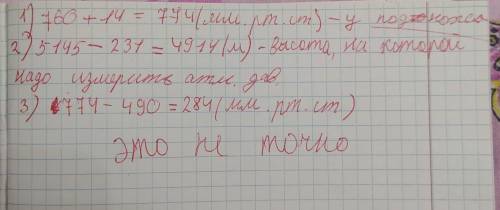 1) 760 + 14 = 774 (мм. рт. ст) - у подножья
2) 5145 - 231 = 4914 (м) - высота, на которой
надо измерить атм. дав.
3) 774 - 490 = 284 (мм. рт. ст)
это не точно